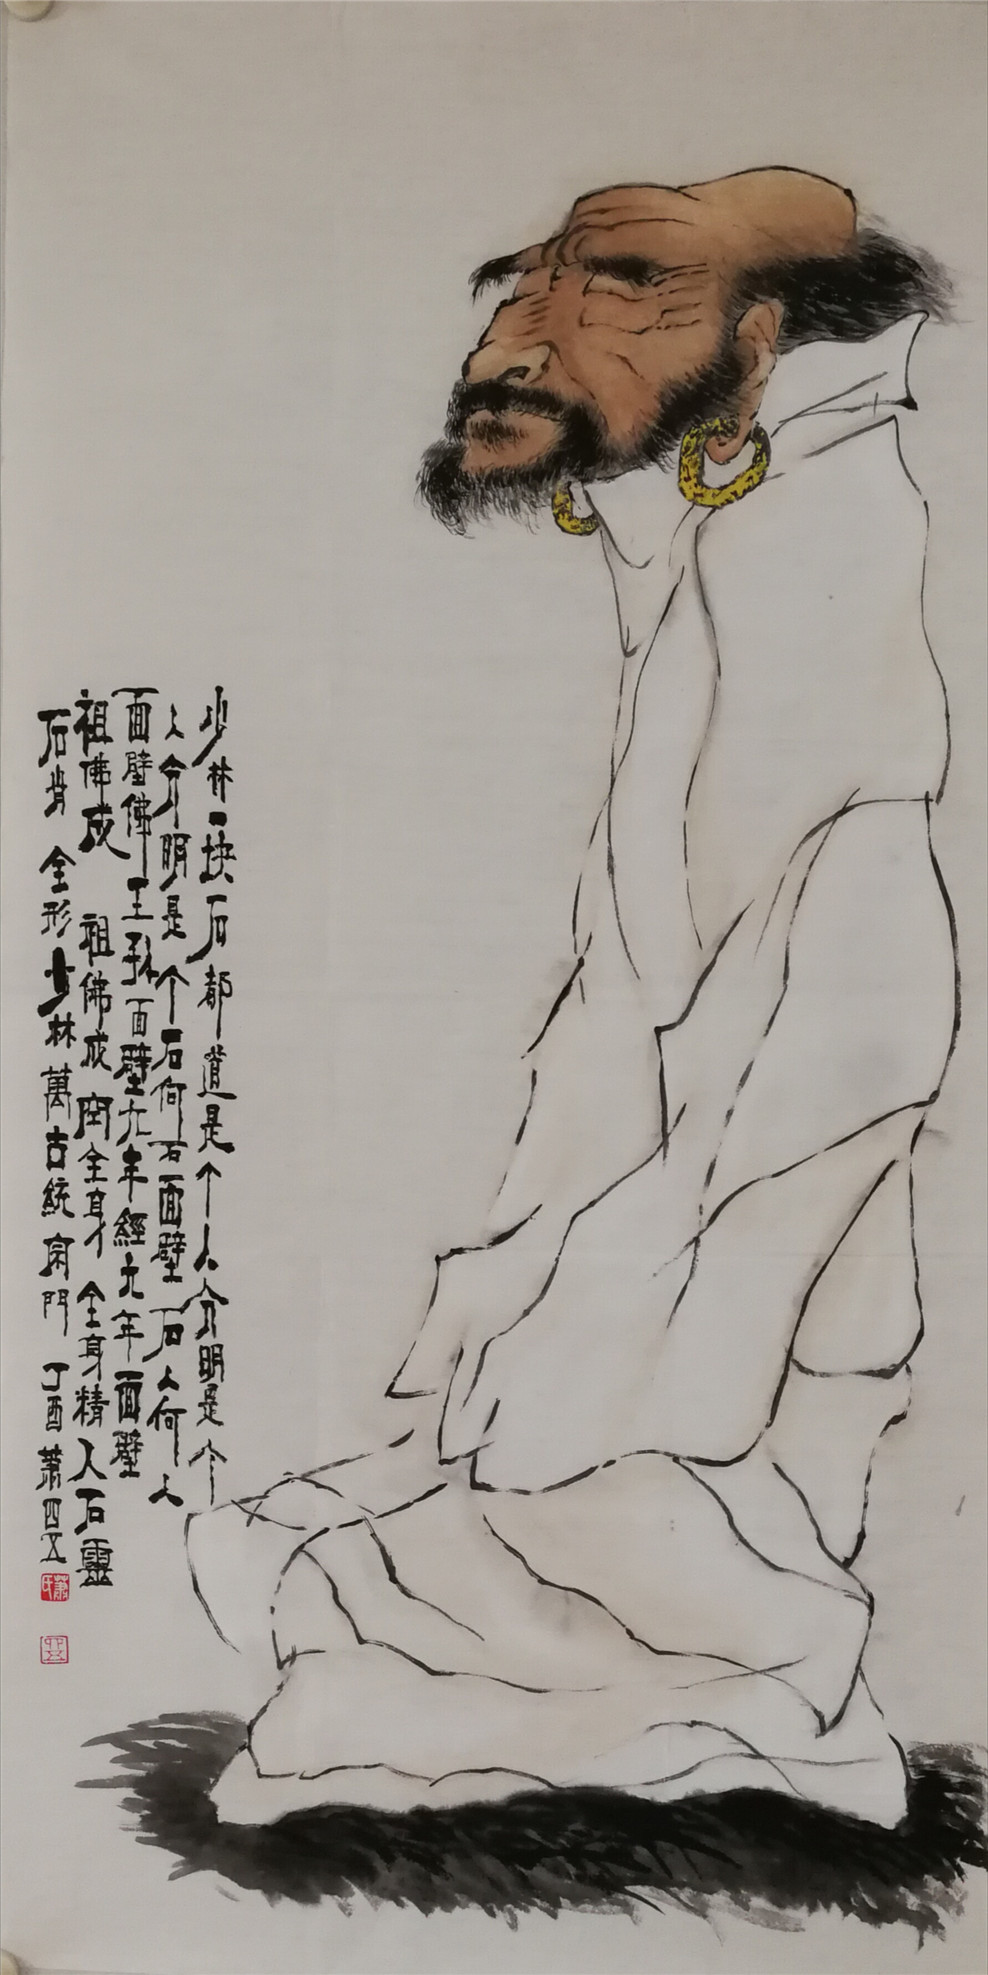 少林一块石都道是个人分明是个
人分明是个石何石面壁石人何人
面壁佛王孫面壁九年經九年面壁
祖佛成 祖佛成空全身全身精入石靈
石肖全形少林萬古統宗門 丁酉蕭四五
蕭氏